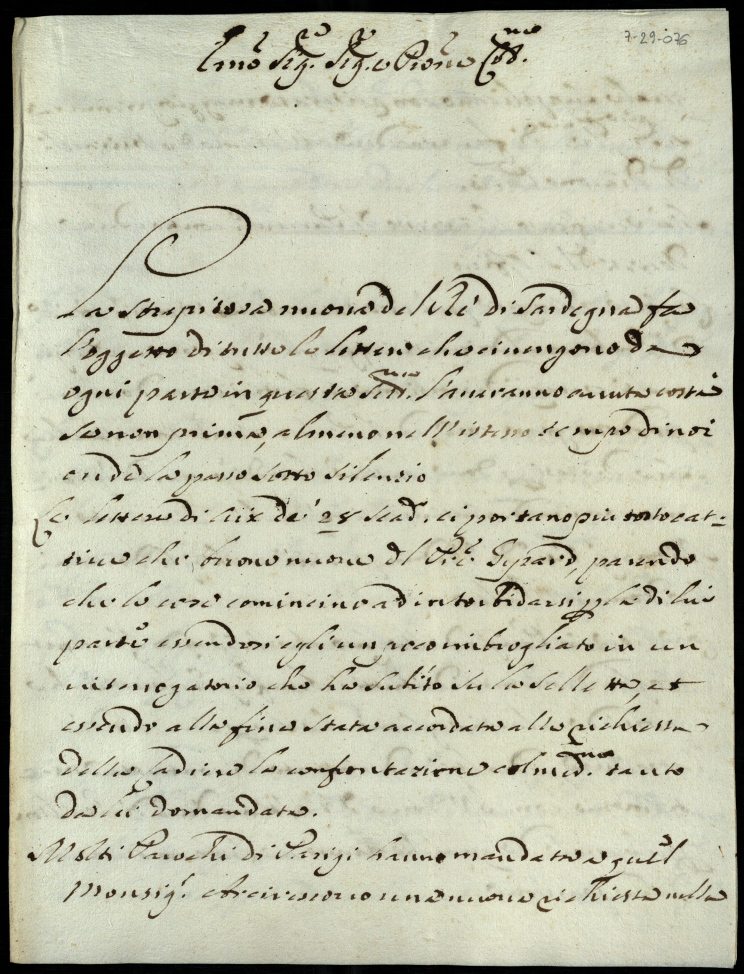 7-29-076
Emo Sig. Sig. e Prone Col.mo
La strepitosa nuova del Rè di Sardegna fa
l'oggetto di tutte le lettere che ci vengono da
ogni parte in questa l'averanno avuta costà
se non prima, almeno nell'istesso tempo di noi
onde la passo sotto silenzio
Le lettere di Aix de' 28 scad. ci portano più tosto cat-
tive che buone nuove del Pre Girard, parendo
che le cose comincino ad intorbidarsi p la di lui
parte essendosi egli un poco imbrogliato in un
interrogatorio che ha subito su la selletta, et
essendo alla fine stata accordata alle richieste
della Cadiere la confrontazione col med.mo tanto
da lei domandata.
Molti Parochi di Parigi hanno mandato a quel
Monsig.r Arcivescovo una nuova richiesta nella